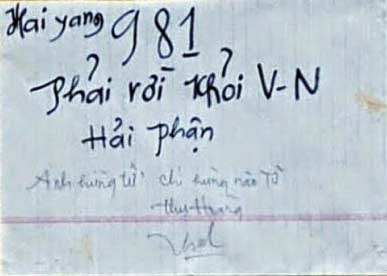 Hai yang 981
Phải rời khỏi V-N
Hải phận
Anh hùng tử, chí hùng nào Tử
Thu Hoàng